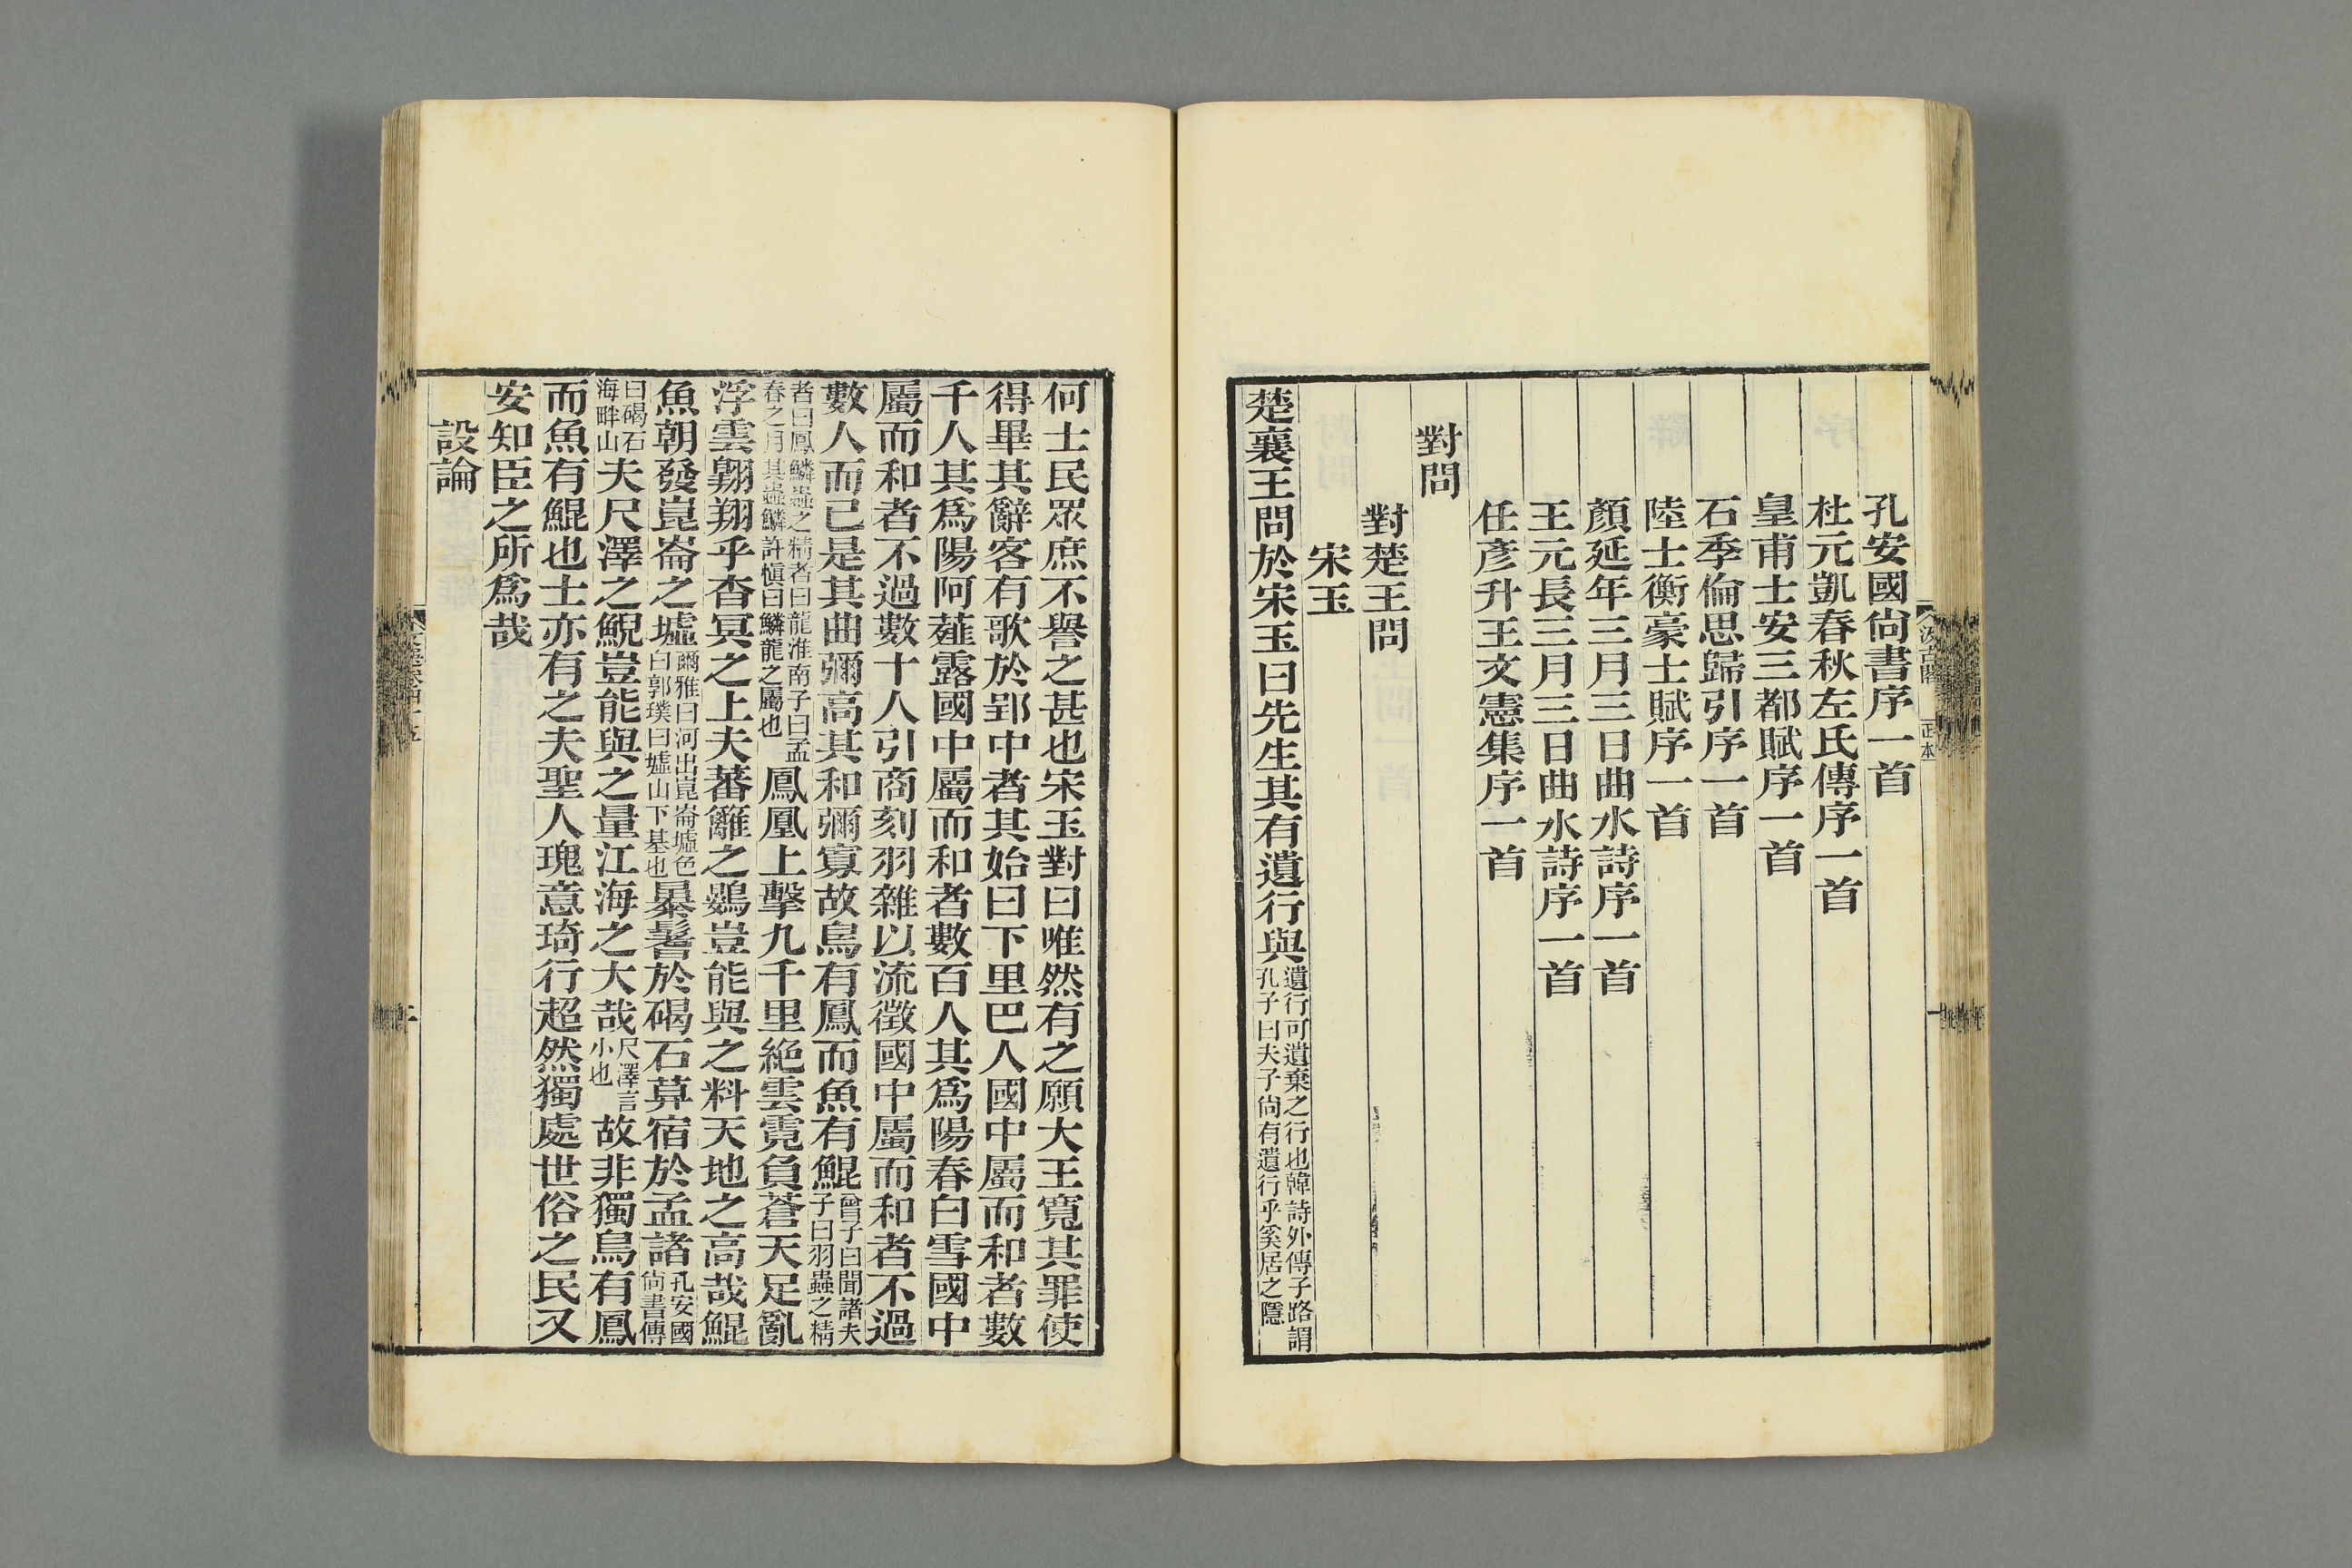 孔安國尙書序一首
杜元凱春秋左氏傳序一首
皇甫士安三都賦序一首
石季倫思歸引序一首
陸士衡豪士賦序一首
顏延年三月三日曲水詩序一首
王元長三月三日曲水詩序一首
任彥升王文憲集序一首
對問
對楚王問
宋玉
楚襄王問於宋玉曰先生其有遺行與遺行可遺棄之行也韓詩外傳子路謂孔子曰夫子尙有遺行乎奚居之隱
何士民眾庶不譽之甚也宋玉對曰唯然有之願大王寬其罪使
得畢其辭客有歌於郢中者其始曰下里巴人國中屬而和者數
千人其爲陽阿薤露國中屬而和者數百人其爲陽春白雪國中
屬而和者不過數十人引商刻羽雜以流徵國中屬而和者不過
數人而已是其曲彌高其和彌寡故鳥有鳳而魚有鯤曾子曰聞諸夫子曰羽蟲之精
者曰鳳鱗蟲之精者曰龍淮南子曰孟春之月其蟲鱗許愼曰鱗龍之屬也鳳凰上擊九千里絶雲霓負蒼天足亂
浮雲翺翔乎杳冥之上夫蕃籬之鷃豈能與之料天地之高哉鯤
魚朝發崑崙之墟爾雅曰河出崑崙墟色白郭璞曰墟山下基也暴鬐於碣石暮宿於孟諸孔安國尙書傳
曰碣石海畔山夫尺澤之鯢豈能與之量江海之大哉尺澤言小也故非獨鳥有鳳
而魚有鯤也士亦有之夫聖人瑰意琦行超然獨處世俗之民又
安知臣之所爲哉
設論